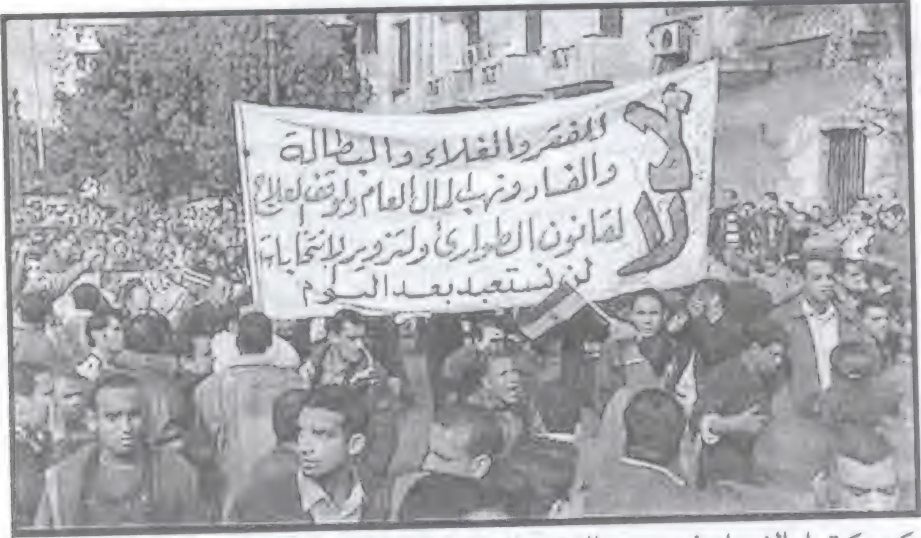 لا للفقر والغلاء والبطالة
والفساد ونهب المال العام
لا لقانون الطوارئ ولتزوير الانتخابات
لن نستعبد بعد اليوم